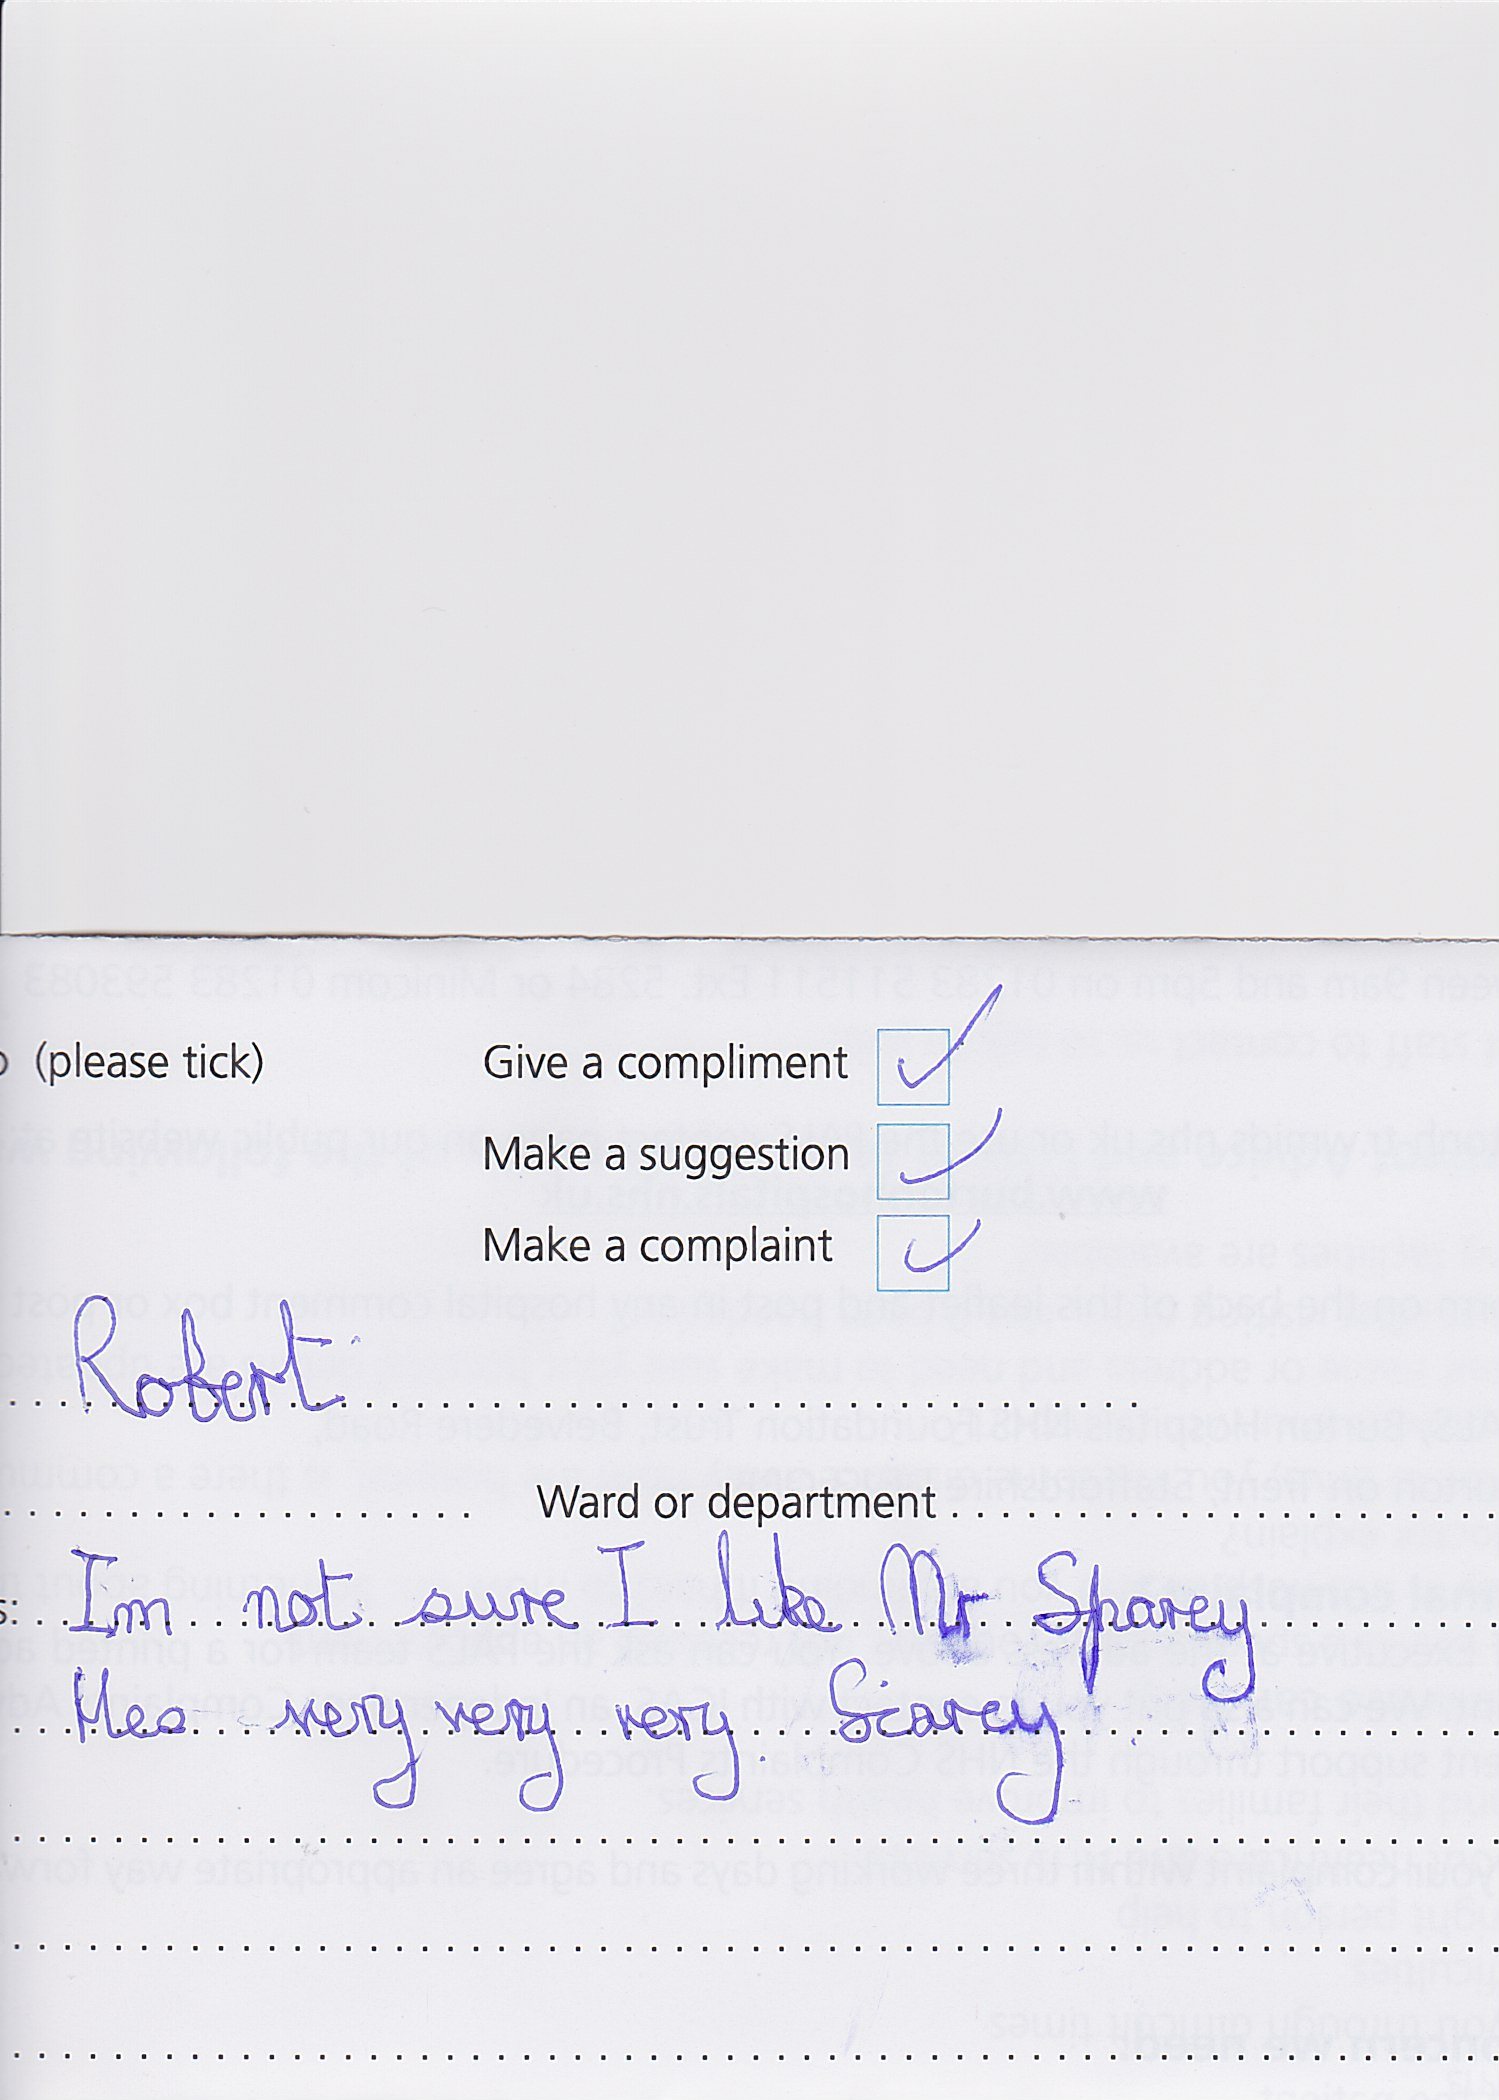 (please tick) Give a compliment
Make a suggestion
Make a complaint
Robert
Ward or department
Im not sure I like Mr Sparey
Hes very very very Scarey